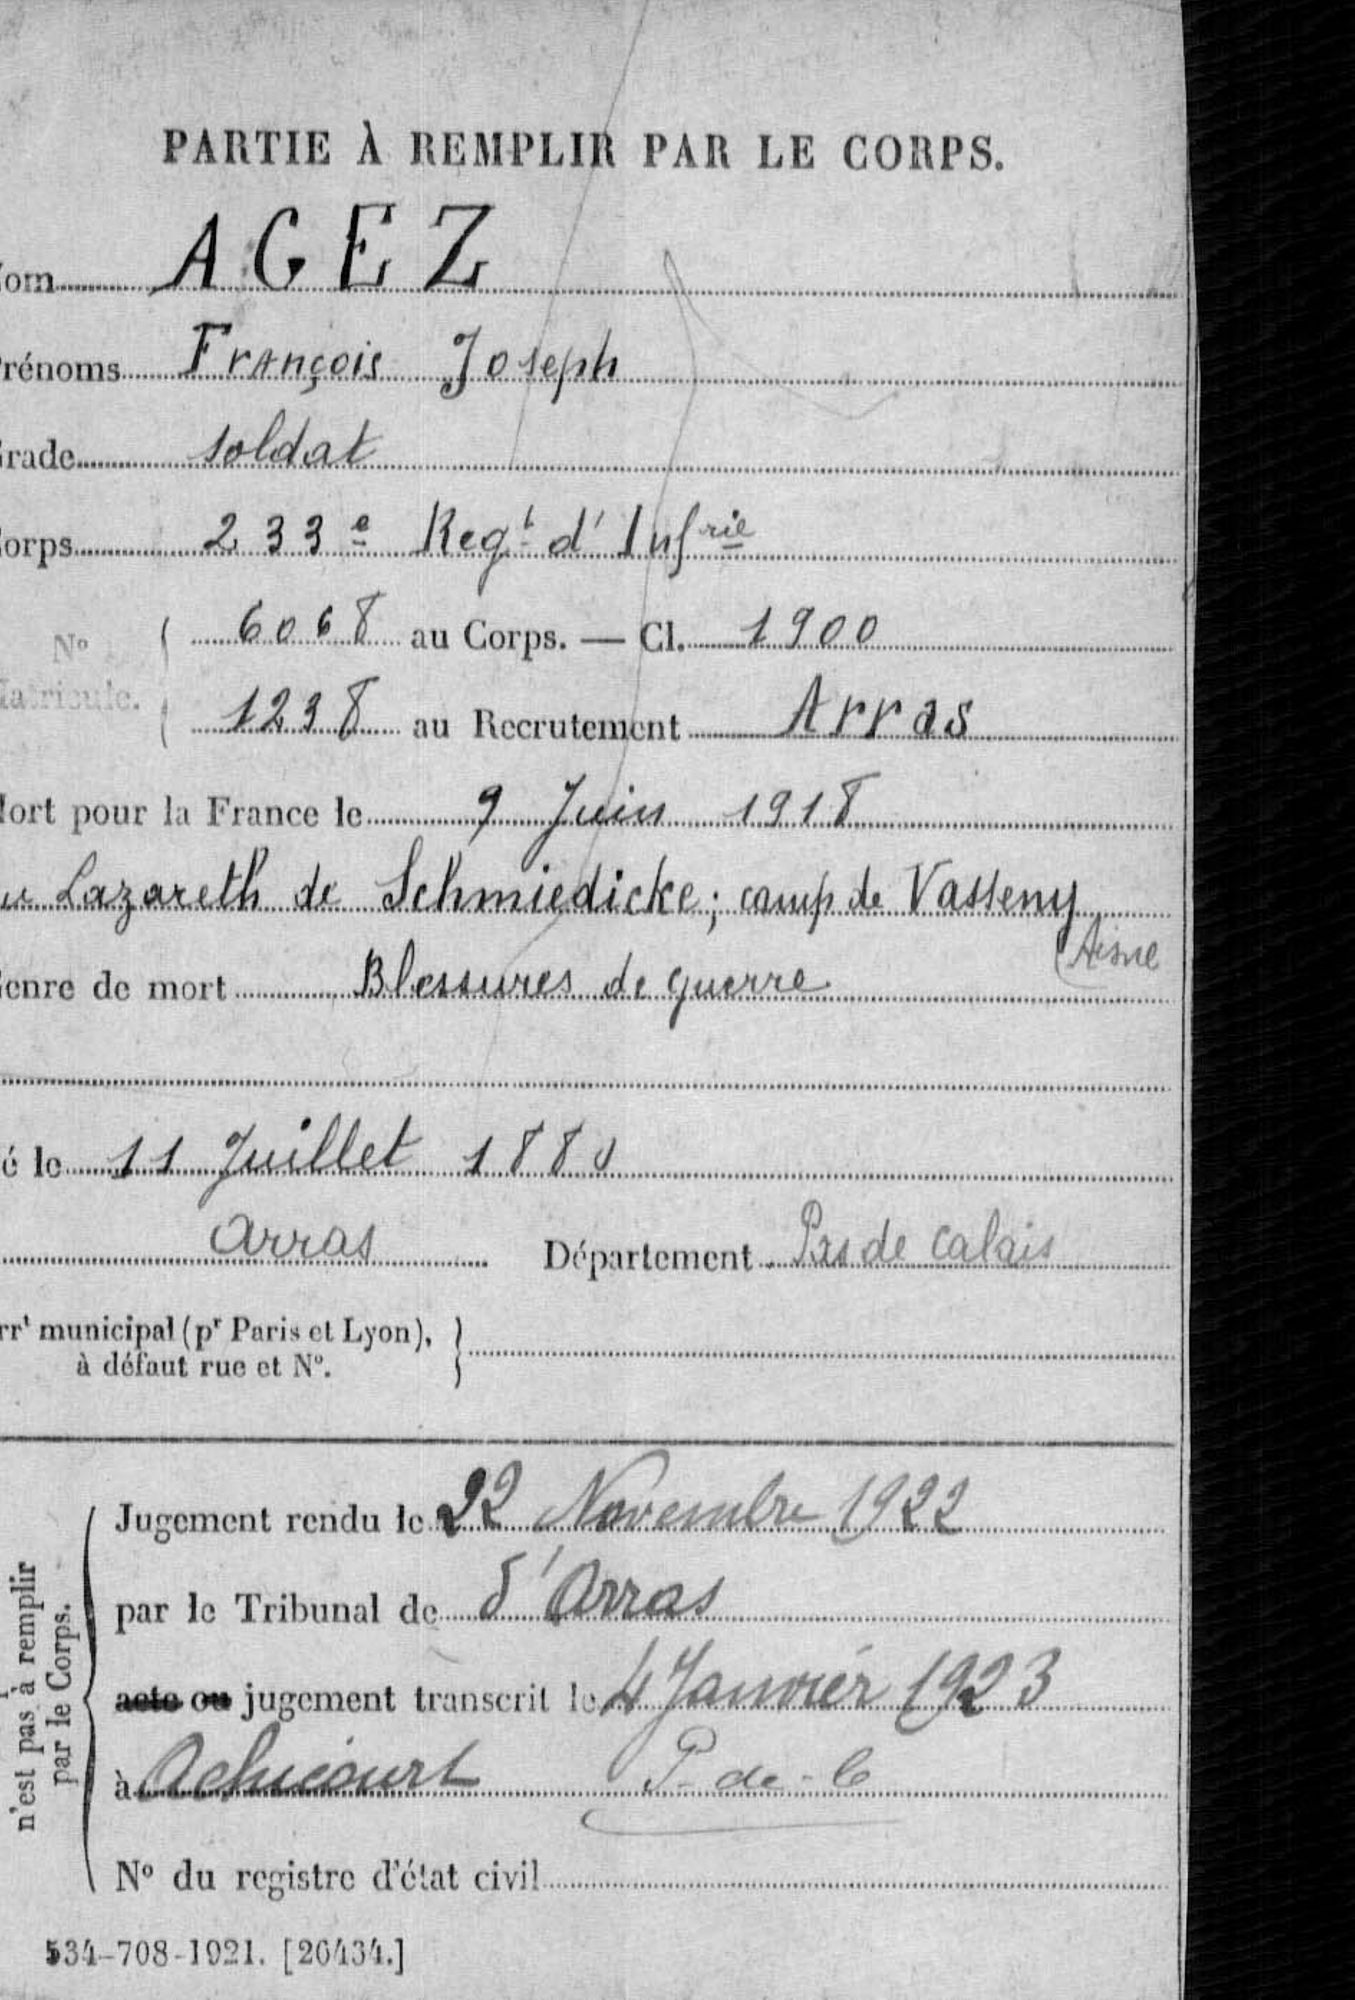 PARTIE À REMPLIR PAR LE CORPS.
Nom AGEZ
Prénoms François Joseph
Grade soldat
Corps 233e Regt d'Infrie
N° Matricule. { 6068 au Corps. — Cl. 1900
1238 au Recrutement Arras
Mort pour la France le 9 Juin 1918
au Lazareth de Schmiedicke; camp de Vasseny
(Aisne
Genre de mort Blessures de guerre
Né le 11 Juillet 1880
Arras Département Pas de Calais
Arrt municipal (pr Paris et Lyon), }
à défaut rue et N°.
n'est pas à remplir
par le Corps.
Jugement rendu le 22 Novembre 1922
par le Tribunal de d'Arras
acte ou jugement transcrit le 4 Janvier 1923
à Achicourt P-de-C
N° du registre d'état civil
534-708-1921. [26434.]